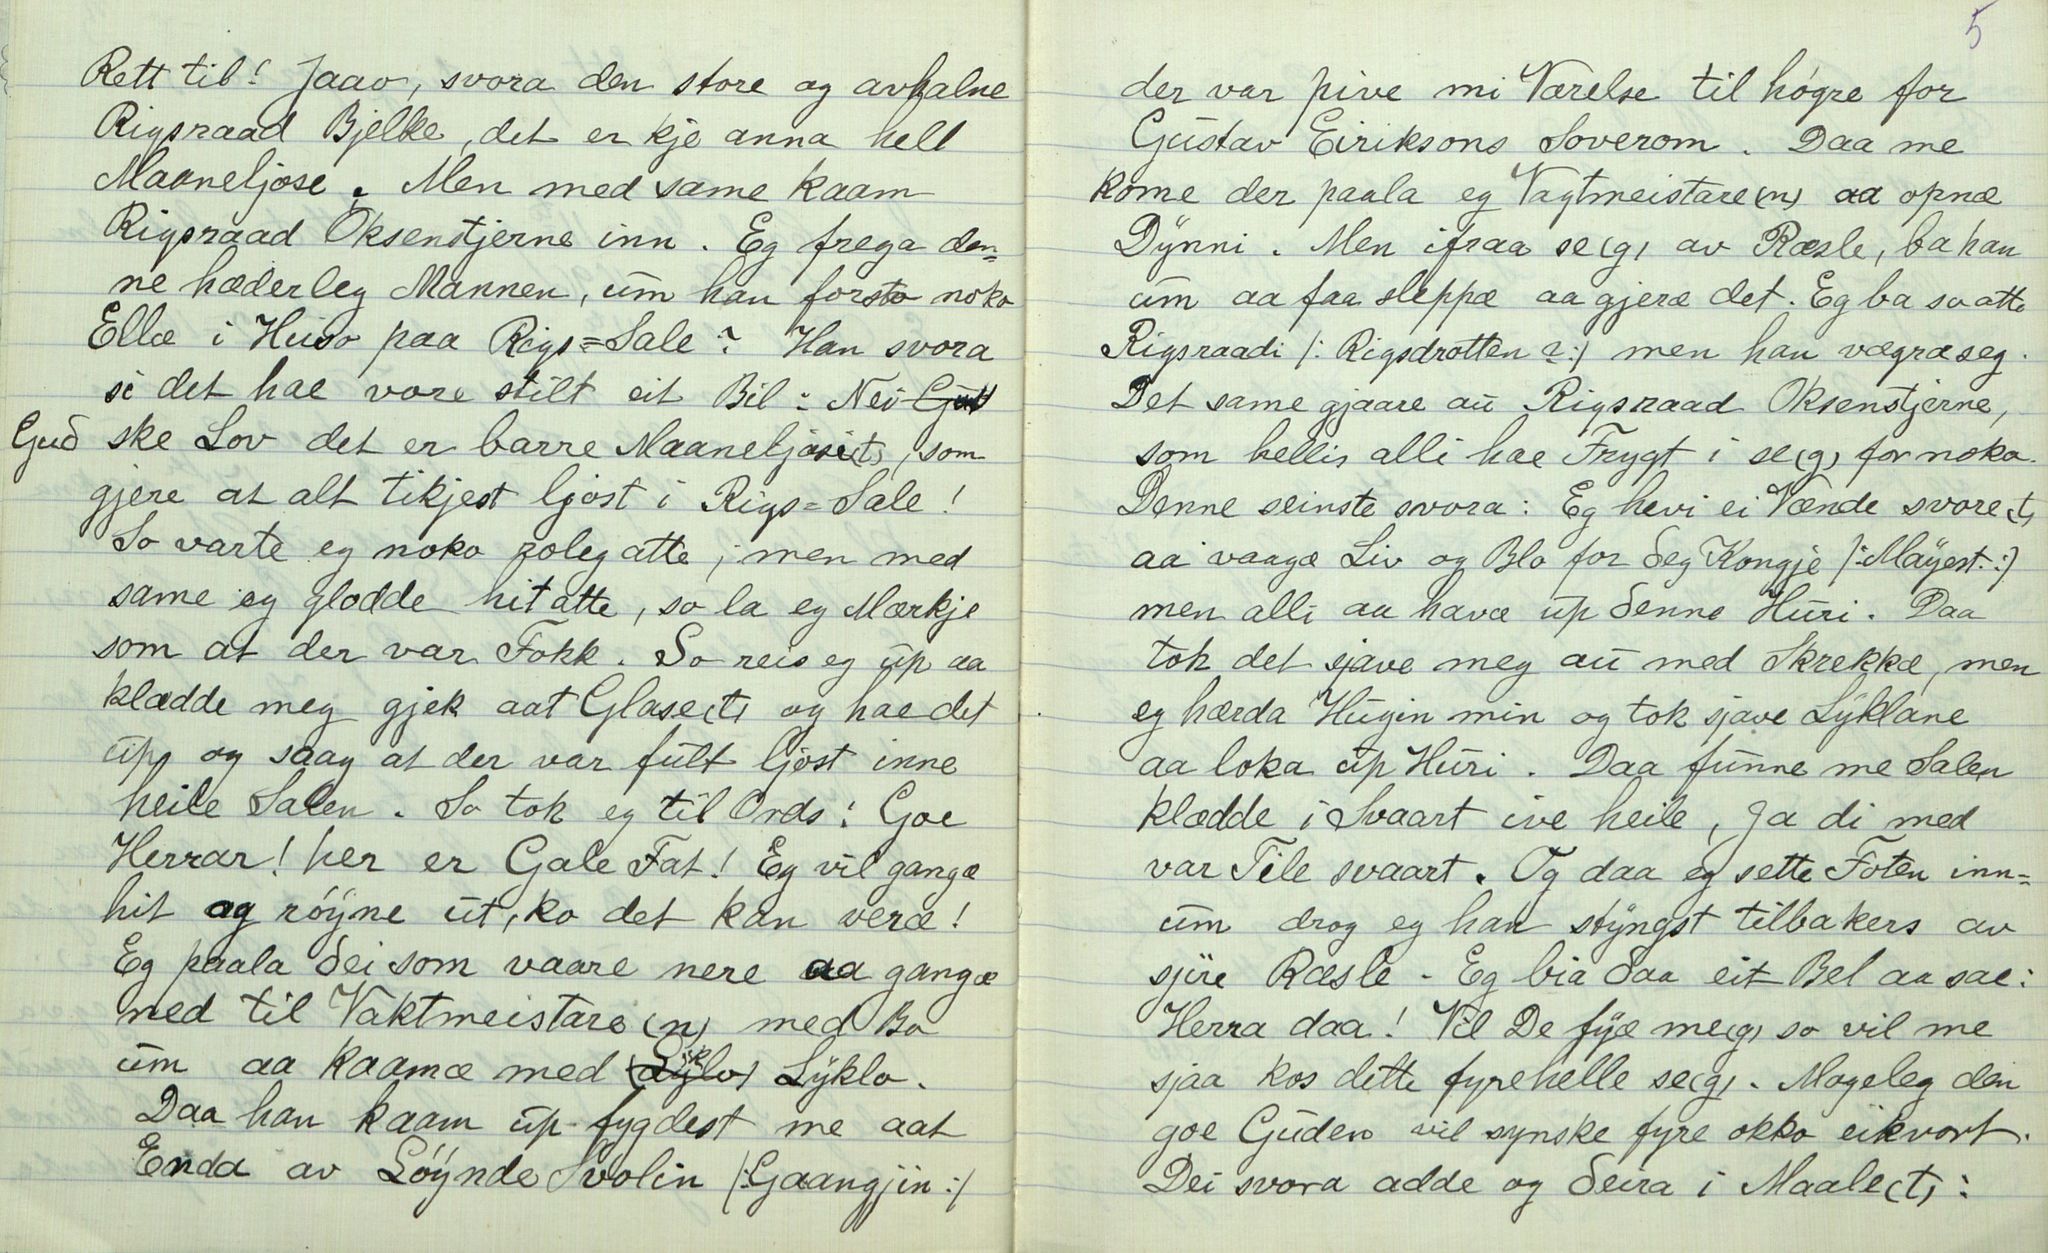 Rett til! Jaao, svora den store og avhalne
Rigsraad Bjelke, det er kje anna hell
Maaneljose. Men med same kaam
Rigsraad Oksenstjerne inn. Eg frega den=
ne hæderleg Mannen, um han forsto noko
Ellæ i Huso paa Rigs=Sale? Han svora
si det hae vore stilt eit Bil: Nei
Gud ske Lov det er barre Maaneljose(t), som
gjere at alt tikjest ljost i Rigs=Sale!
So varte eg noko roleg atte, men med
same eg glodde hit atte, so la eg Mærkje
som at der var Fokk. So reis eg up aa
klædde meg gjek aat Glase(t) og hae det
up, og saag at der var fult ljost inne
heile Salen. So tok eg til Ords: Goe
Herrar! her er Gale Fat! Eg vil gangæ
hit og røyne ut, ko det kan veræ!
Eg paala dei som vaare nere aa gangæ
ned til Vaktmeistare(n) med Bo
um aa kaamæ med Lyklo.
Daa han kaam up fygdest me aat
Enda av Løynde Svolin /:Gaangjin:/
5
der var pive mi Værelse til høgre for
Gustav Eiriksons Soverom. Daa me
kome der paala eg Vagtmeistare(n) aa opnæ
Dynni. Men ifraa se(g) av Ræsle, ba han
um aa faa sleppæ aa gjeræ det. Eg ba so atte
Rigsraadi /: Rigsdrotten ?:/ men han vægræ seg.
Det same gjaare au Rigsraad Oksenstjerne,
som hellis alli hae Frygt i se(g) for noko.
Denne seinste svora: Eg hevi ei Vænde svore(t)
aa vaagæ Liv og Blo for deg Kongje /:Mayest.:/
men alli aa havæ up denne Huri. Daa
tok det sjave meg au med Skrekkæ, men
eg hærda Hugin min og tok sjave Lyklane
aa loka up Huri. Daa funne me Salen
klædde i Svaart ive heile, Ja di med
var Tile svaart. Og daa eg sette Foten inn=
um drog eg han styngst tilbakers av
sjire Ræsle. Eg bia daa eit Bel aa sae:
Herra daa! Vil De fyæ me(g) so vil me
sjaa kos dette fyrehelle se(g). Mogeleg den
goe Guden vil synske fyre okko eikvort.
Dei svora adde og deira i Maale(t):